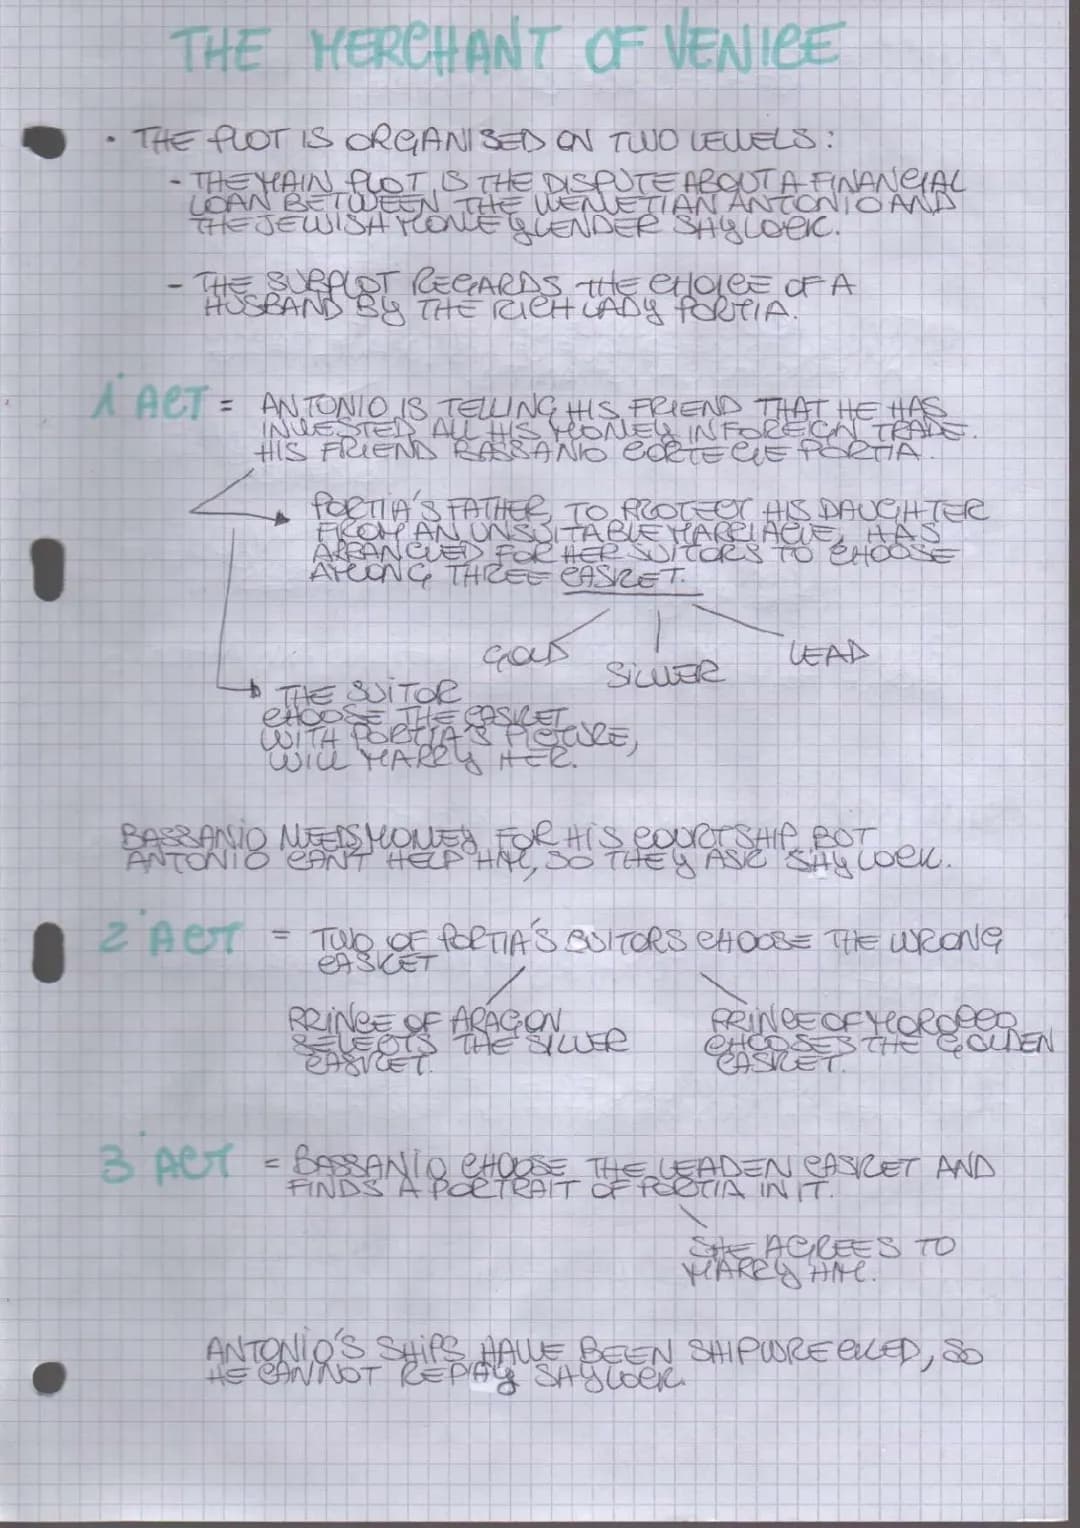 THE MERCHANT OF VENICE
• THE PLOT IS ORGANISED ON TWO LEVELS:
- THE MAIN PLOT IS THE DISPUTE ABOUT A FINANCIAL
LOAN BETWEEN THE VENETIAN ANTONIO AND
THE JEWISH MONEYLENDER SHYLOCK.
- THE SUBPLOT REGARDS THE CHOICE OF A
HUSBAND BY THE RICH LADY PORTIA.
1° ACT = ANTONIO IS TELLING HIS FRIEND THAT HE HAS
INVESTED ALL HIS MONEY IN FOREIGN TRADE.
HIS FRIEND BASSANIO CORTEGGE PORTIA.
PORTIA'S FATHER, TO PROTECT HIS DAUGHTER
FROM AN UNSUITABLE MARRIAGE, HAS
ARRANGED FOR HER SUITORS TO CHOOSE
AMONG THREE CASKET.
GOLD SILVER LEAD
THE SUITOR
CHOOSE THE CASKET
WITH PORTIA'S PICTURE,
WILL MARRY HER.
BASSANIO NEEDS MONEY FOR HIS COURTSHIP BOT
ANTONIO CAN'T HELP HIM, SO THEY ASK SHYLOCK.
2° ACT = TWO OF PORTIA'S SUITORS CHOOSE THE WRONG
CASKET
PRINCE OF ARAGON
SELECTS THE SILVER
CASKET.
PRINCE OF MOROCCO
CHOOSES THE GOLDEN
CASKET.
3° ACT = BASSANIO CHOOSE THE LEADEN CASKET AND
FINDS A PORTRAIT OF PORTIA IN IT.
SHE AGREES TO
MARRY HIM.
ANTONIO'S SHIPS HAVE BEEN SHIPWRECKED, SO
HE CANNOT REPAY SHYLOCK.